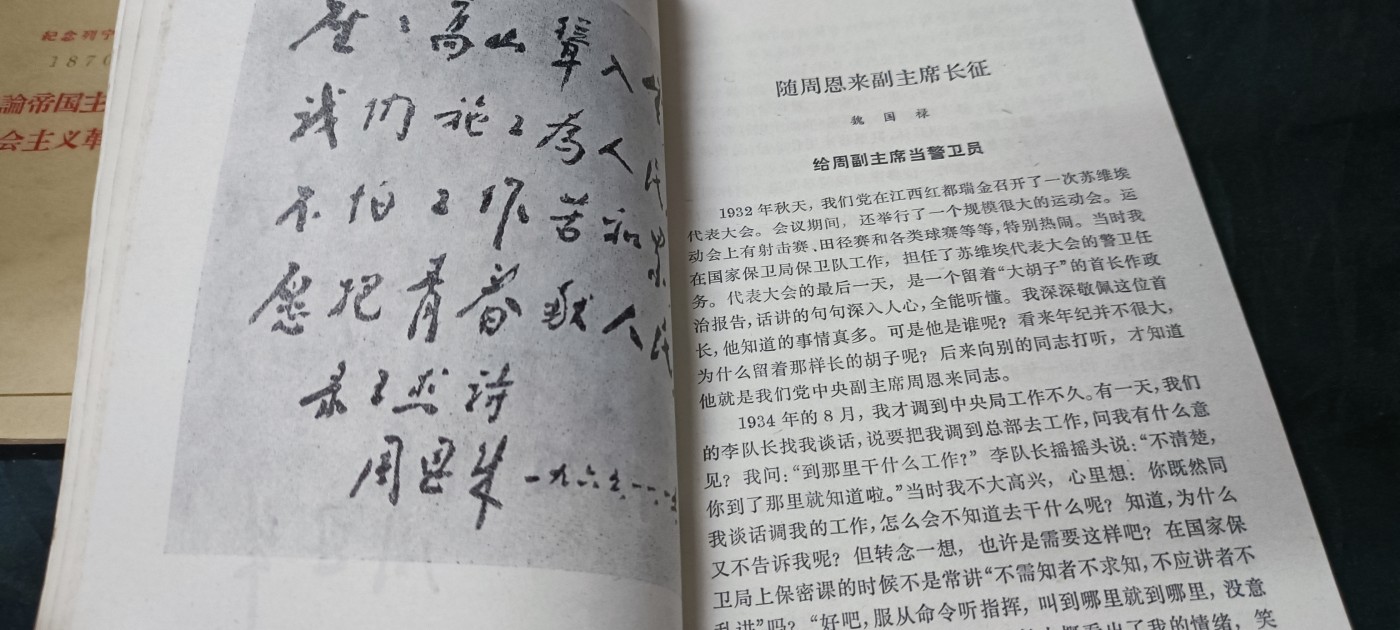 紀念列宁
1870
論帝国主
会主义革
座座高山耸入
我们施工为人
不怕工作苦和
愿把青春献人民
录工地诗
周恩来 一九六五.一一.
随周恩来副主席长征
魏国禄
给周副主席当警卫员
1932年秋天，我们党在江西红都瑞金召开了一次苏维埃
代表大会。会议期间，还举行了一个规模很大的运动会。运
动会上有射击赛、田径赛和各类球赛等等，特别热闹。当时我
在国家保卫局保卫队工作，担任了苏维埃代表大会的警卫任
务。代表大会的最后一天，是一个留着“大胡子”的首长作政
治报告，话讲的句句深入人心，全能听懂。我深深敬佩这位首
长，他知道的事情真多。可是他是谁呢？看来年纪并不很大，
为什么留着那样长的胡子呢？后来向别的同志打听，才知道
他就是我们党中央副主席周恩来同志。
1934年的8月，我才调到中央局工作不久。有一天，我们
的李队长找我谈话，说要把我调到总部去工作，问我有什么意
见？我问：“到那里干什么工作？”李队长摇摇头说：“不清楚，
你到了那里就知道啦。”当时我不大高兴，心里想：你既然同
我谈话调我的工作，怎么会不知道去干什么呢？知道，为什么
又不告诉我呢？但转念一想，也许是需要这样吧？在国家保
卫局上保密课的时候不是常讲“不需知者不求知，不应讲者不
乱讲”吗？“好吧，服从命令听指挥，叫到哪里就到哪里，没意
看出了我的情绪，笑